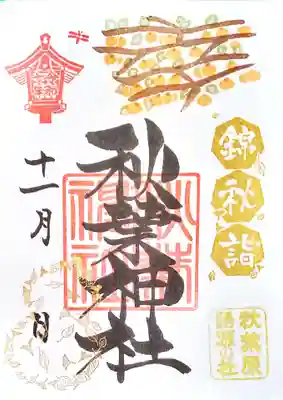 錦秋詣
秋葉神社
秋葉神社
十一月
日
秋葉原